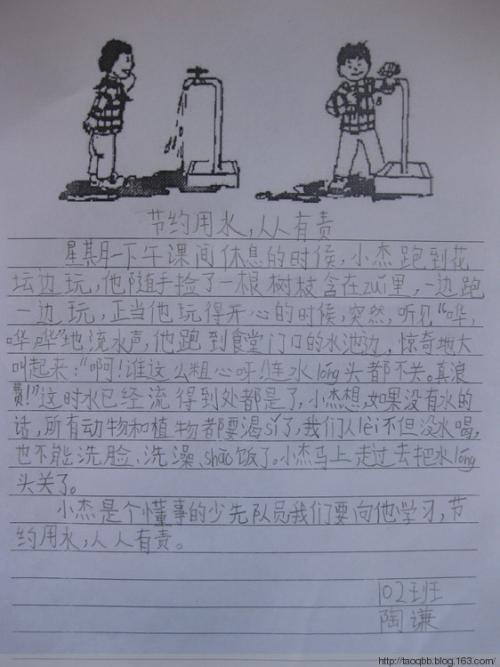 节约用水,人人有责
星期一下午课间休息的时候,小杰跑到花
坛边玩,他随手捡了一根树枝含在zuǐ里,一边跑
一边玩,正当他玩得开心的时候,突然,听见“哗,
哗,哗”地流水声,他跑到食堂门口的水池边,惊奇地大
叫起来:“啊!谁这么粗心呀!连水lóng头都不关。真浪
费!”这时水已经流得到处都是了,小杰想,如果没有水的
话,所有动物和植物都要渴sǐ了,我们人lèi不但没水喝,
也不能洗脸、洗澡、shāo饭了。小杰马上走过去把水lóng
头关了。
小杰是个懂事的少先队员我们要向他学习,节
约用水,人人有责。
102班
陶谦
http://taoqbb.blog.163.com/